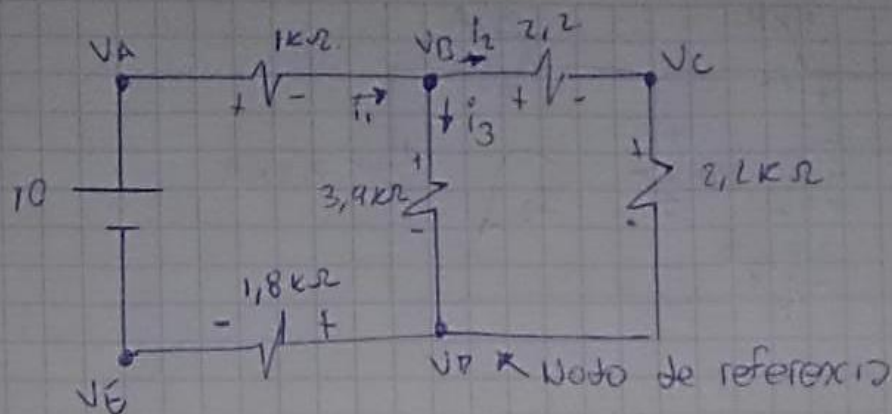 VA
1KΩ
VB
i2
2,2
VC
+ -
i1
+ -
i3
10
+
3,9KΩ
-
+
2,2KΩ
-
1,8KΩ
- +
VE
VD * Nodo de referencia